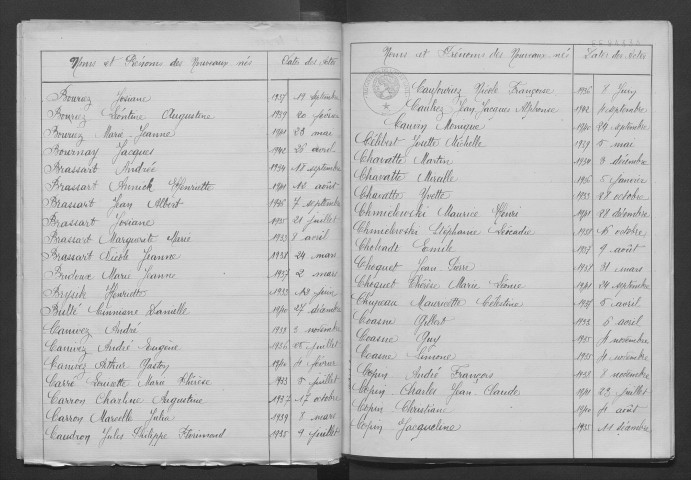 Noms et Prénoms des Nouveaux nés Dates des Actes
Bouriez Josiane 1937 19 septembre
Bouriez Léontine Augustine 1939 20 février
Bouriez Marie-Jeanne 1941 23 mai
Bournay Jacques 1942 26 avril
Brassart Andrée 1934 18 septembre
Brassart Annick Henriette 1941 12 août
Brassart Jean Albert 1936 7 septembre
Brassart Josiane 1935 21 juillet
Brassart Marguerite Marie 1933 3 avril
Brassart Nicole Jeanne 1938 24 mars
Marie Jeanne 1937 2 mars
Henriette 1933 juin
Bulté Danielle 1940 27 décembre
Canivez André 1933 3 novembre
Canivez André Eugène 1936 juillet
Canivez Arthur Gaston 1940 4 février
Carré Marie Thérèse 1933 8 juillet
Carron Charline Augustine 1937 17 octobre
Carron Marcelle Julia 1939 8 mars
Caudron Jules Philippe Florimond 1935 9 juillet
Noms et Prénoms des Nouveaux nés Dates des Actes
Nicole Françoise 1936 8 juin
Jean Jacques Alphonse 1942 septembre
Cauvin Monique 1940 29 septembre
Josette Michelle 1939 5 mai
Chavatte Martin 1930 3 décembre
Chavatte Mireille 1936 5 janvier
Chavatte Yvette 1933 28 octobre
Chmielewski Maurice Henri 1941 28 décembre
Chmielewski Stéphanie Léocadie 1938 16 octobre
Emile 1937 9 août
Choquet Jean Pierre 1938 31 mars
Choquet Thérèse Marie Léonie 1941 24 septembre
Mauricette Célestine 1938 5 avril
Coasne Gilbert 1933 6 avril
Coasne Guy 1935 4 novembre
Coasne Simone 1935 4 novembre
Copin André François 1938 8 novembre
Copin Charles Jean Claude 1941 22 juillet
Copin Christiane 1940 4 août
Copin Jacqueline 1935 11 décembre